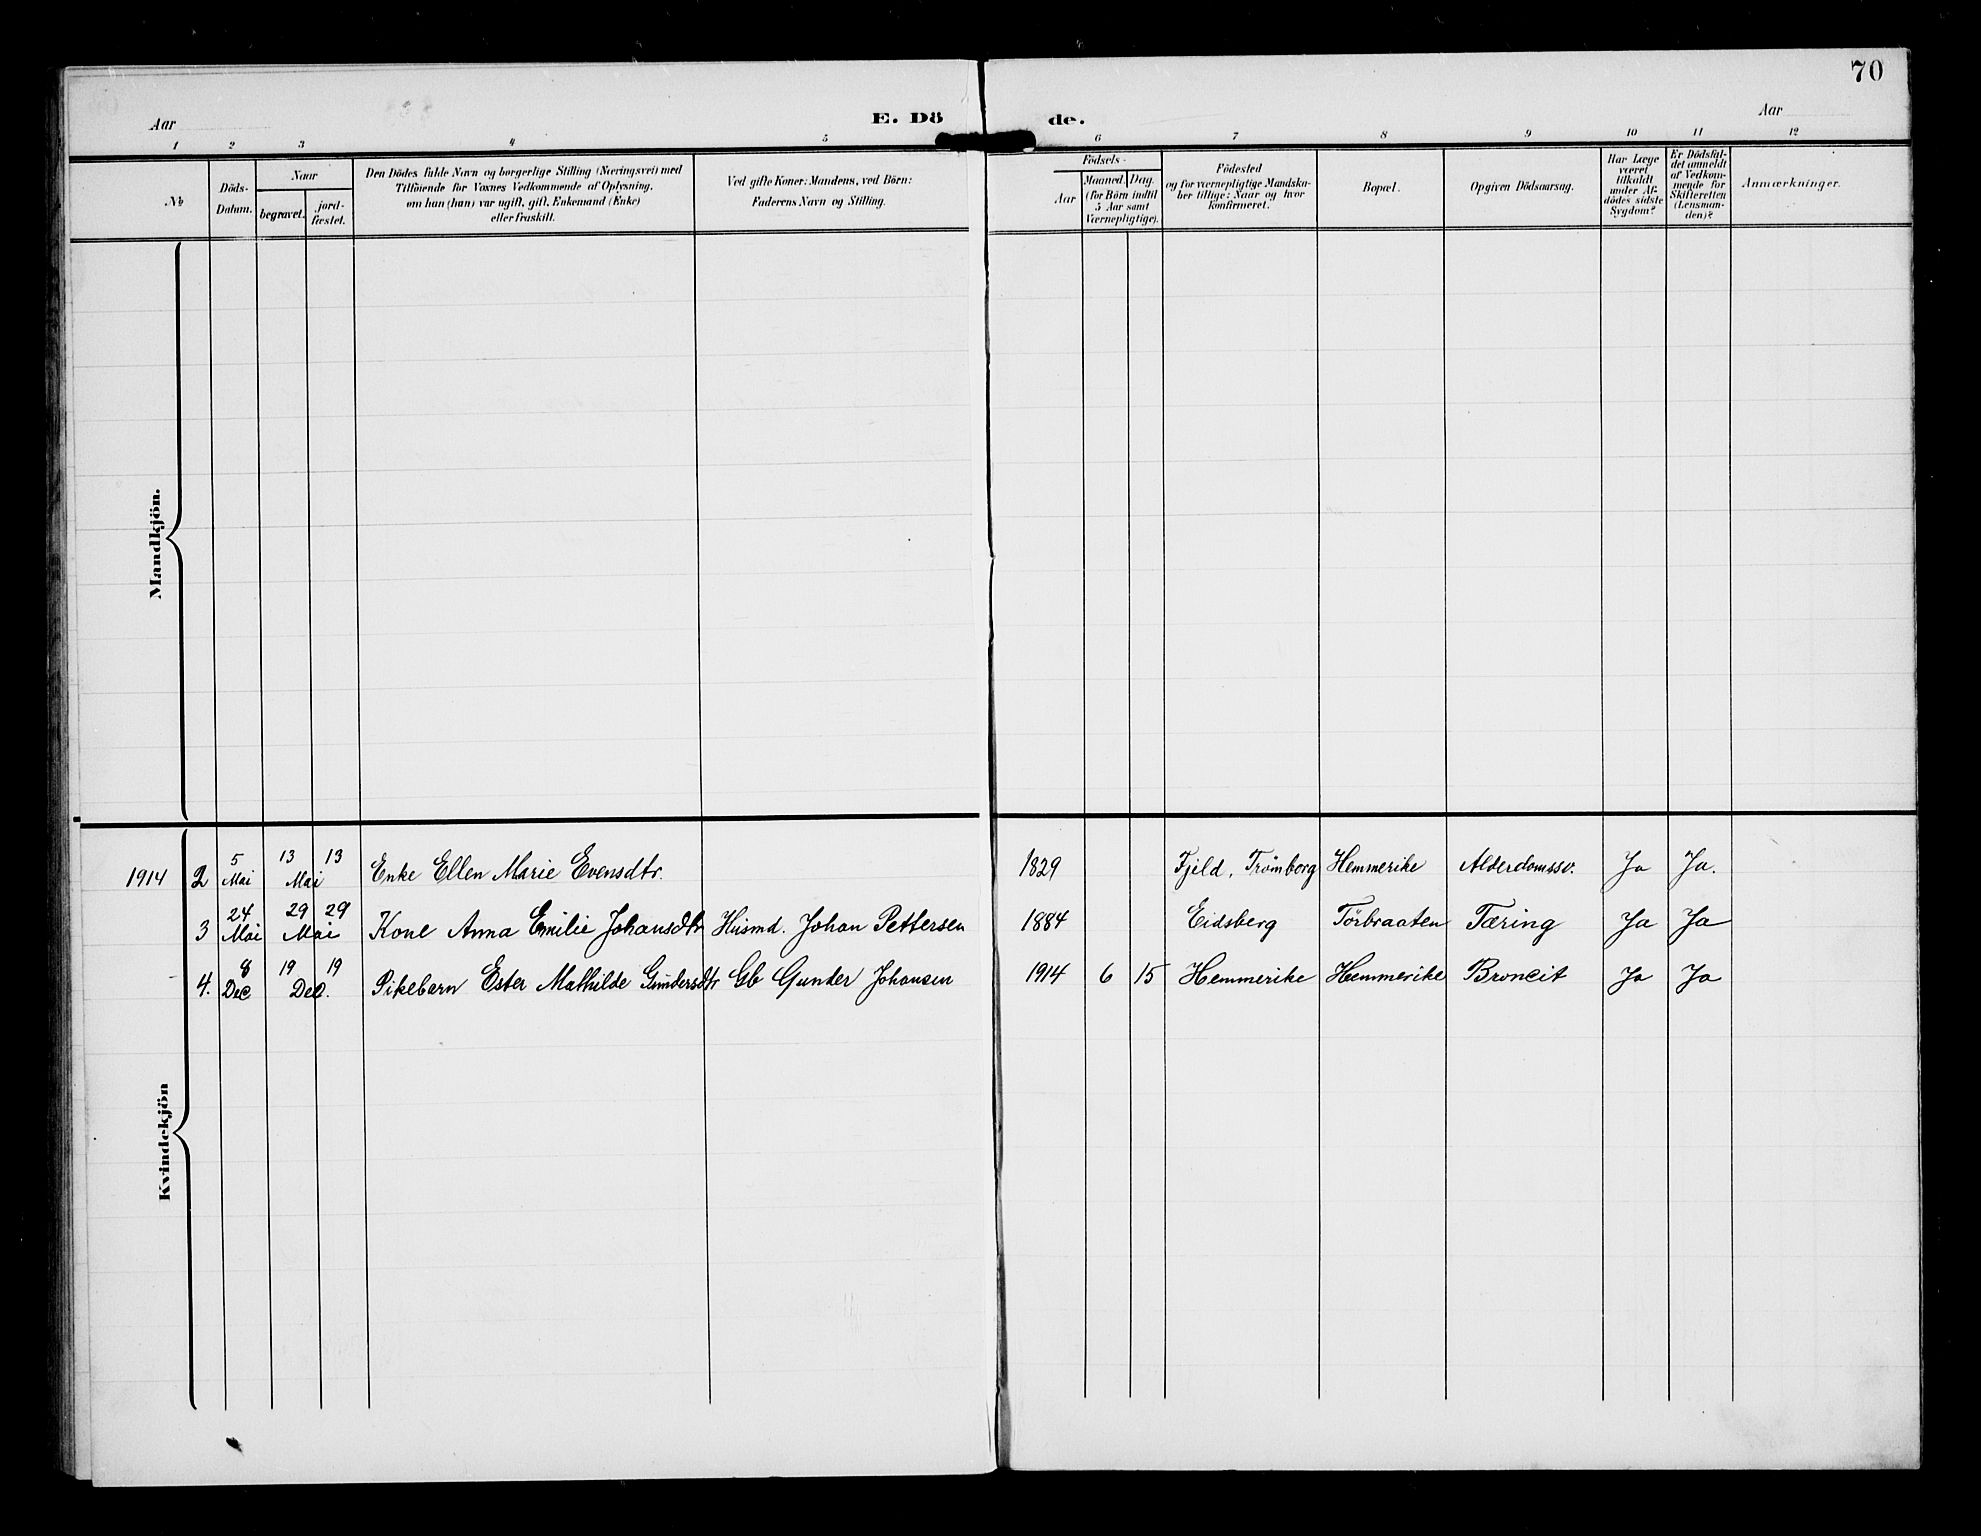 70
Aar
E. Dö
de.
Aar
1 2 3 4 5 6 7 8 9 10 11 12
№
Döds-
Datum.
Naar
begravet.
jord-
fæstet.
Den Dödes fulde Navn og borgerlige Stilling (Næringsvei) med
Tilföiende for Voxnes Vedkommende af Oplysning,
om han (hun) var ugift, gift, Enkemand (Enke)
eller fraskilt.
Ved gifte Koner: Mandens, ved Börn:
Faderens Navn og Stilling.
Födsels-
Aar
Maaned.
Dag.
(for Börn indtil
5 Aar samt
Værnepligtige).
Födested
og for værnepligtige Mandska-
ber tillige: Naar og hvor
konfirmeret.
Bopæl.
Opgiven Dödsaarsag.
Har Læge
været
tilkaldt
under Af-
dödes sidste
Sygdom?
Er Dödsfal-
det anmeldt
af Vedkom-
mende for
Skifteretten
(Lensman-
den)?
Anmærkninger.
Mandkjön.
Kvindekjön
1914 2 5 Mai 13 13 Mai Enke Ellen Marie Evensdtr. 1829 Fjeld, Trømborg Hemmerike Alderdomssv. Ja Ja.
3 24 Mai 29 29 Mai Kone Anna Emilie Johansdtr Husmd. Johan Pettersen 1884 Eidsberg Törbraaten Tæring Ja Ja
4. 8 Dec 19 19 Dec. Pikebarn Ester Mathilde Gundersdtr Gb Gunder Johansen 1914 6 15 Hemmerike Hemmerike Broncit Ja Ja